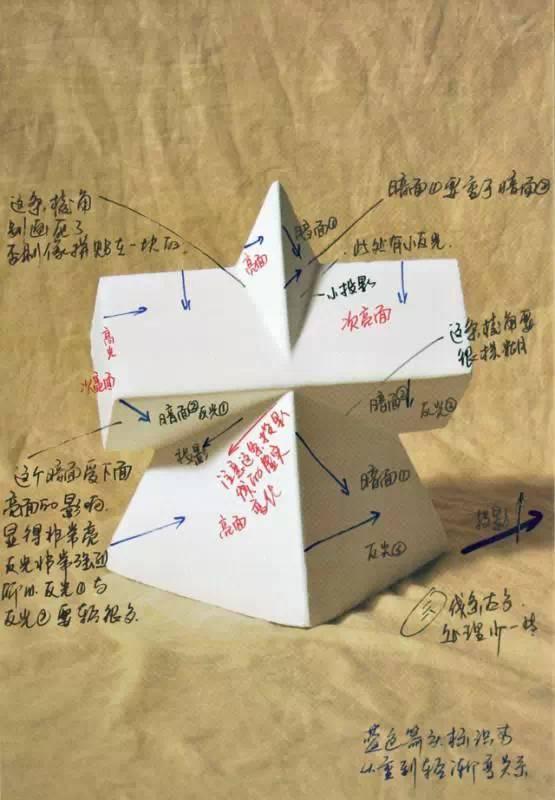 这条棱角
别画死了
否则像拼贴在一块的
暗面①要重于暗面②
此处有小反光.
暗面②
亮面
小投影
次亮面
高光
次亮面
这条棱角要
很模糊
暗面②反光①
暗面②
反光②
投影
注意这条投影
线的虚实
变化
亮面
暗面①
反光④
这个暗面受下面
亮面的影响.
显得非常亮
反光非常强烈
所以反光①与
反光②要轻很多
投影
线条方向
处理少一些
蓝色箭头标识为
从重到轻渐变关系